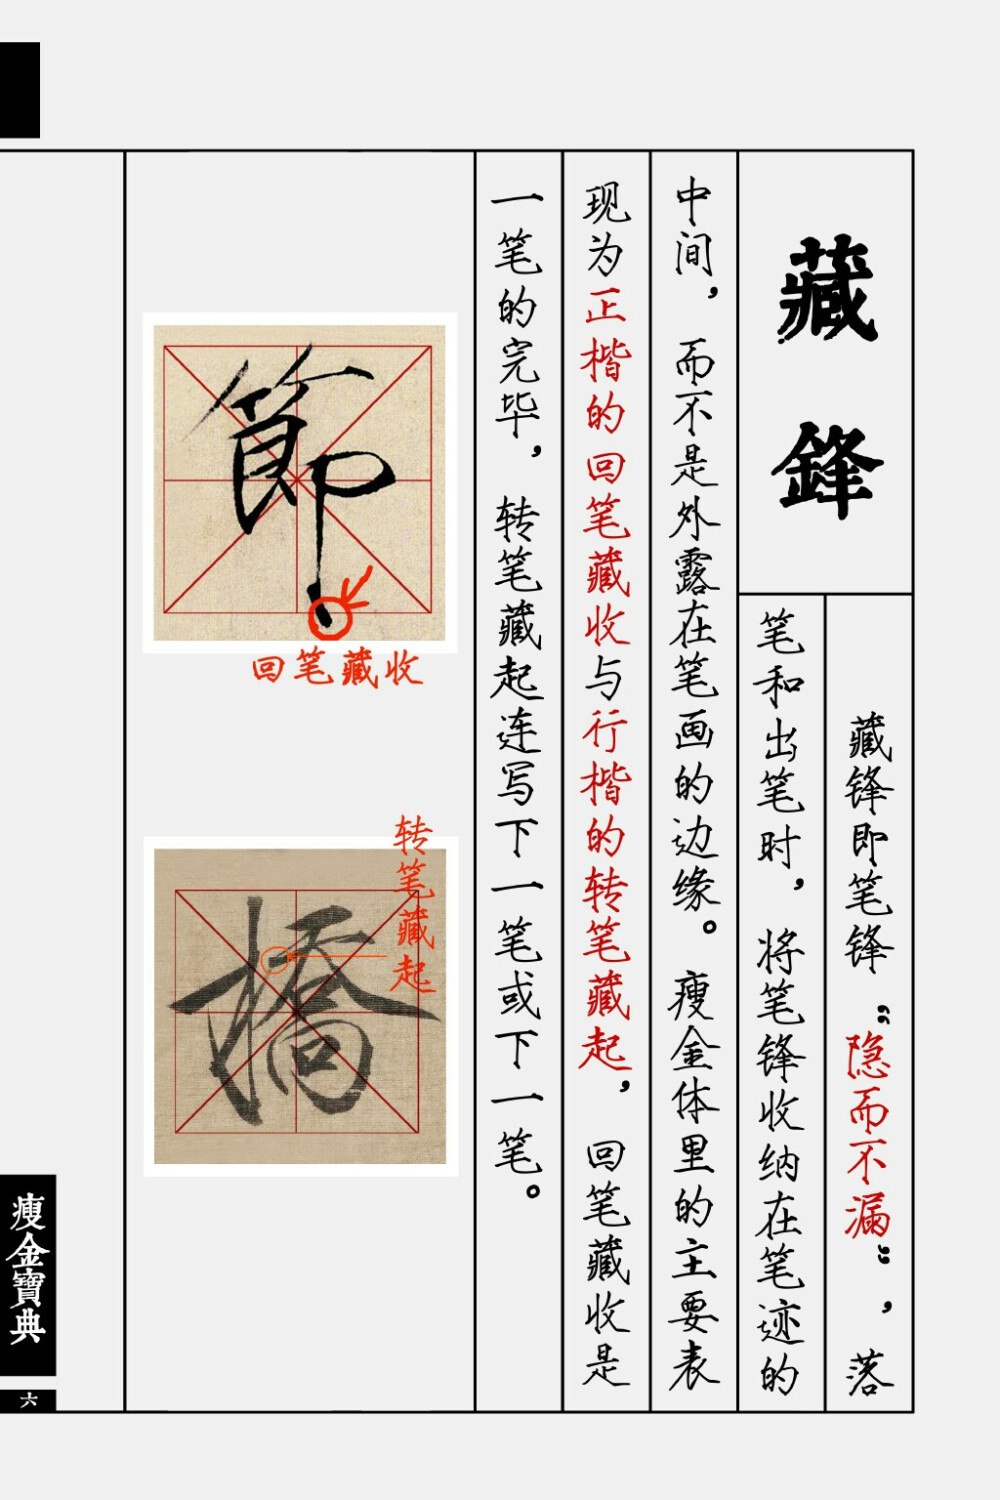 藏鋒
藏锋即笔锋“隐而不漏”，落
笔和出笔时，将笔锋收纳在笔迹的
中间，而不是外露在笔画的边缘。瘦金体里的主要表
现为正楷的回笔藏收与行楷的转笔藏起，回笔藏收是
一笔的完毕，转笔藏起连写下一笔或下一笔。
節
回笔藏收
转笔藏起
橋
瘦金寶典
六